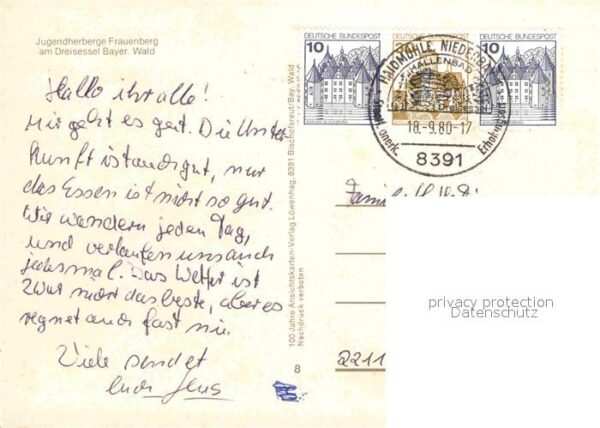 Jugendherberge Frauenberg
am Dreisessel Bayer. Wald
Hallo ihr alle!
Mir geht es gut. Die Unter
kunft ist auch gut, nur
das Essen ist nicht so gut.
Wir wandern jeden Tag,
und verlaufen uns auch
jedesmal. Das Wetter ist
zwar nicht das beste, aber es
regnet auch fast nie.
Viele sendet
euch Jens
100 Jahre Ansichtskarten-Verlag Löwenhag, 8391 Bischofsreut/Bay. Wald
Nachdruck verboten
8
10 DEUTSCHE BUNDESPOST
DEUTSCHE BUNDESPOST
10 DEUTSCHE BUNDESPOST
HAIDMÜHLE, NIEDERBAY
HALLENBAD
18.-9.80-17
Staatl. anerk. Erholungsort
8391
2211
privacy protection
Datenschutz